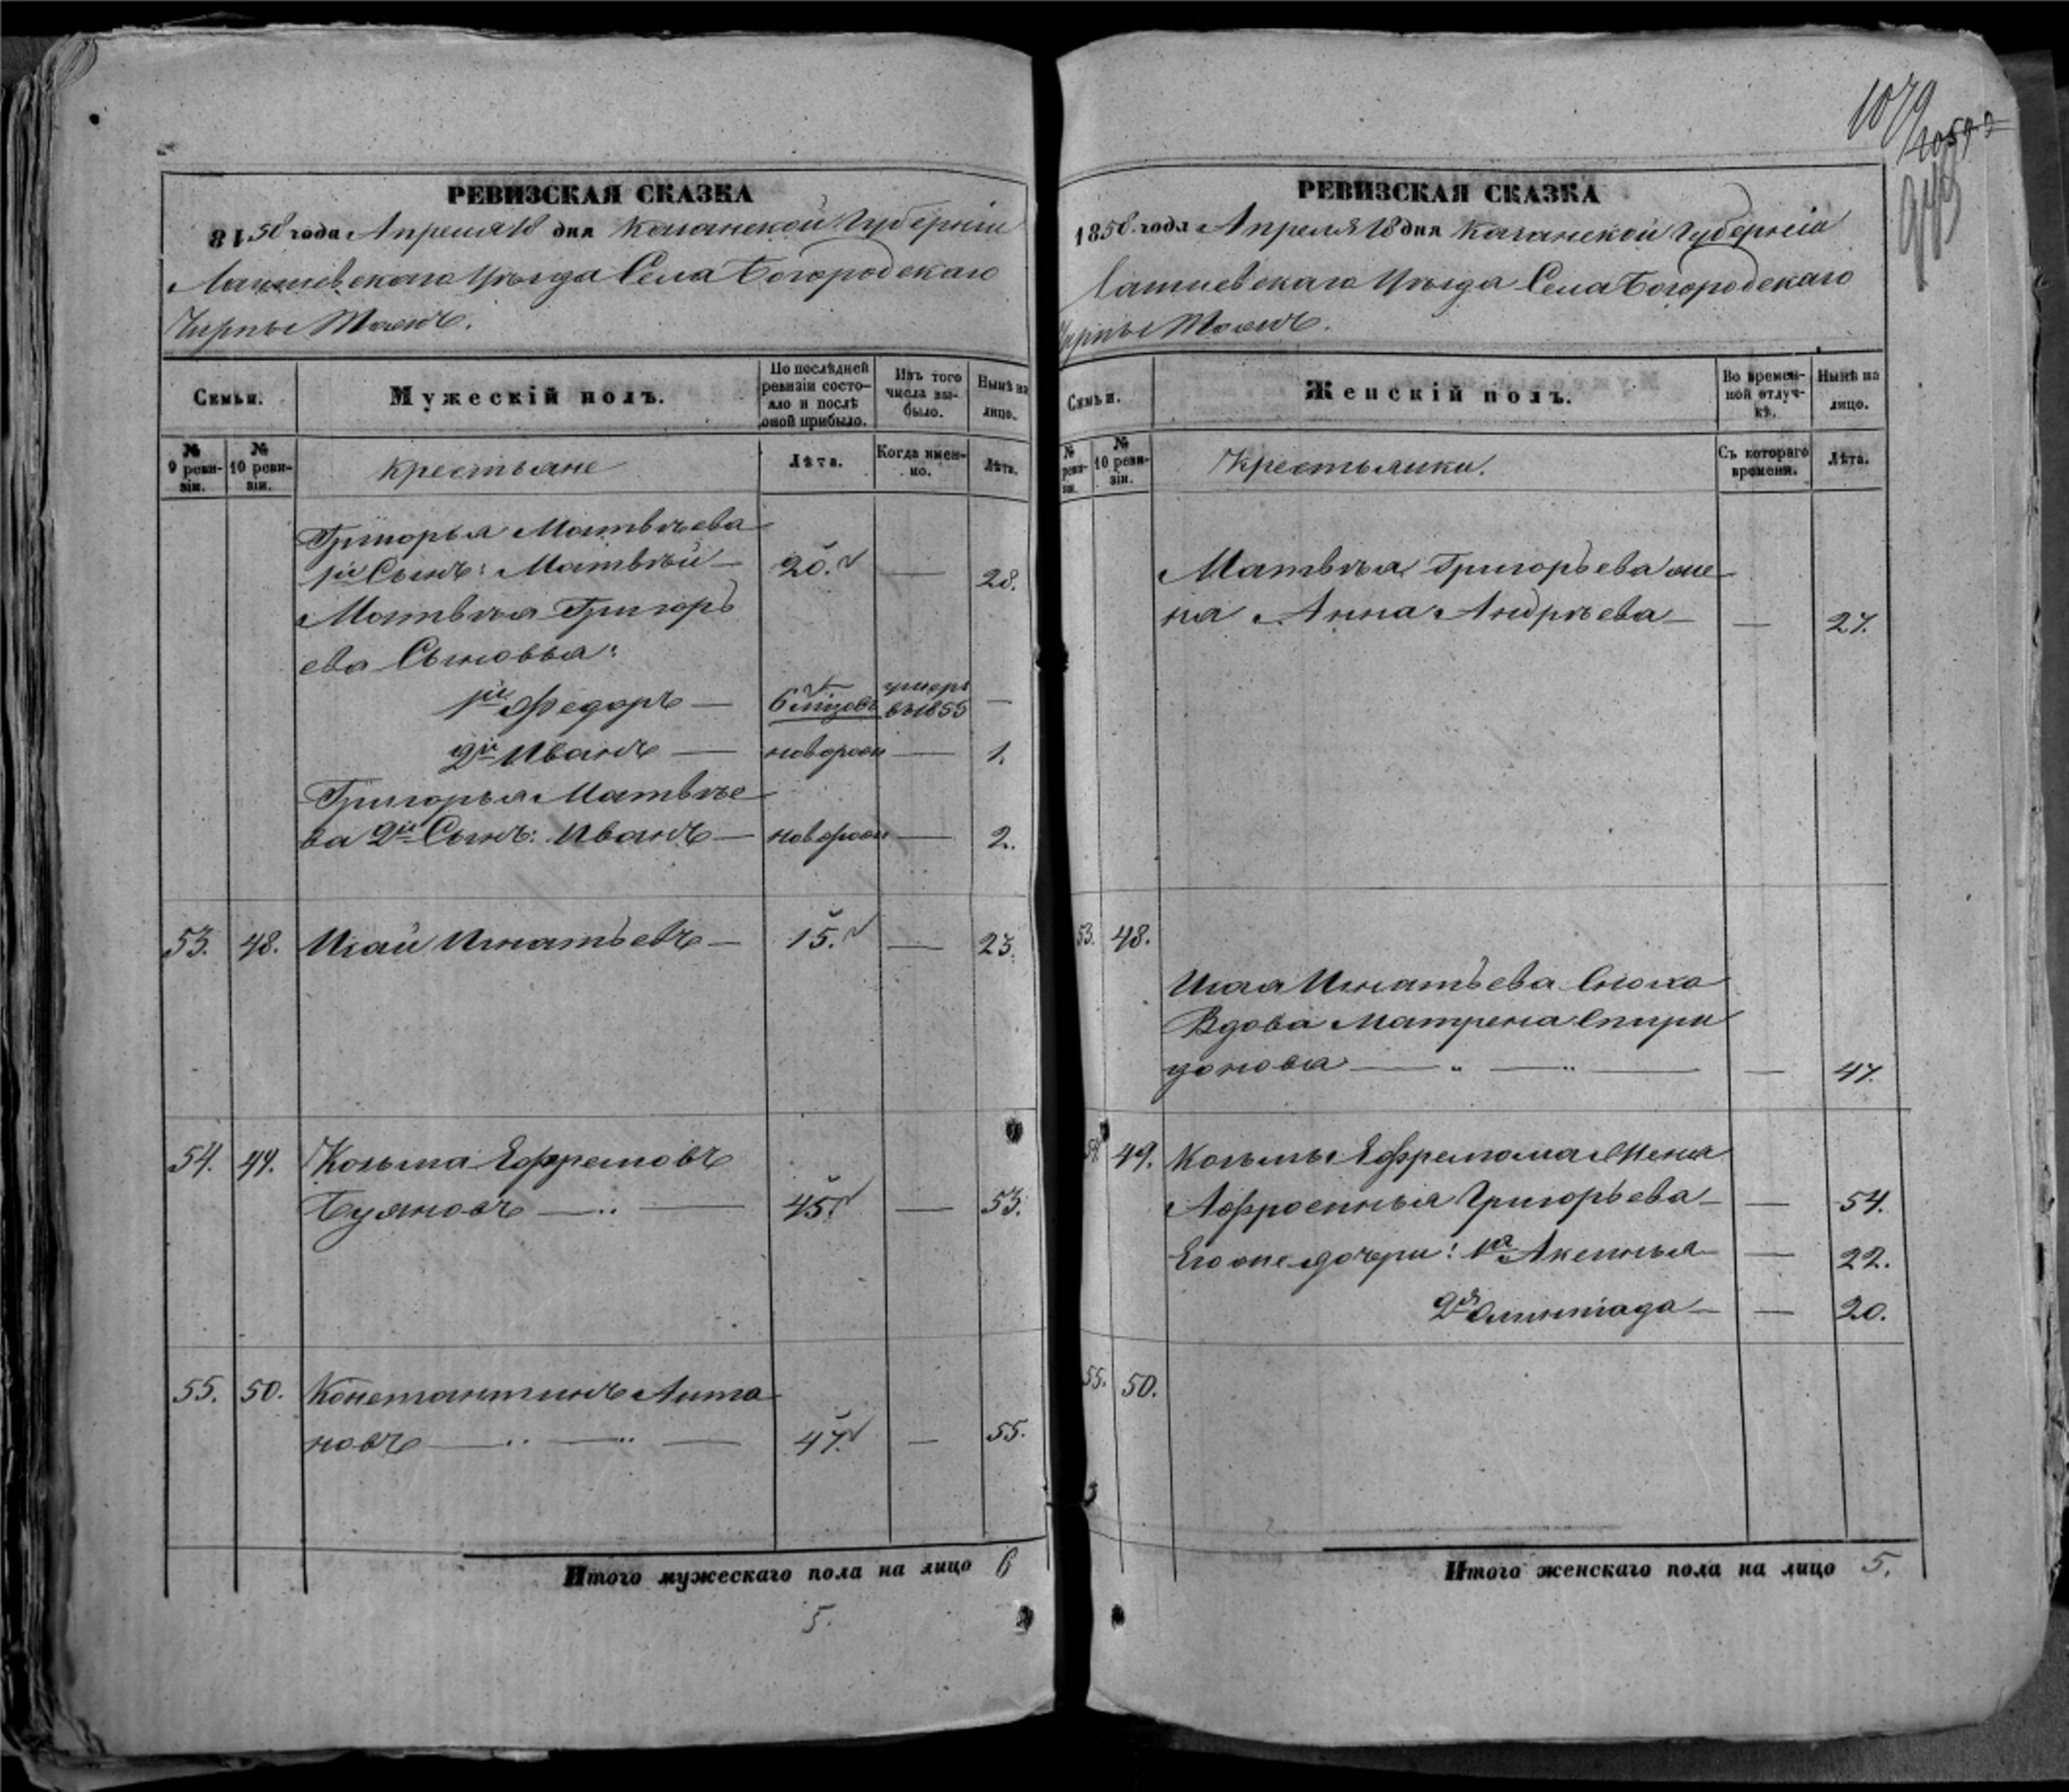 РЕВИЗСКАЯ СКАЗКА
1858 года Апреля 18 дня Казанской Губерніи
Лаишевскаго Уѣзда Села Богородскаго
Чирпы тожъ.
Семьи.
Мужескій полъ.
По послѣдней ревизіи состояло и послѣ оной прибыло.
Изъ того числа выбыло.
Нынѣ на лицо.
№ 9 ревизіи.
№ 10 ревизіи.
крестьяне
Лѣта.
Когда именно.
Лѣта.
Григорья Матвѣева
1й Сынъ: Матвѣй — 20. — 28.
Матвѣя Григорь
ева Сыновья:
1й Федоръ — 6 мѣзовъ умеръ въ 1855 —
2й Иванъ — новорож — 1.
Григорья Матвѣе
ва 2й Сынъ: Иванъ — новорож — 2.
53. 48. Исай Игнатьевъ — 15. — 23.
54. 49. Козьма Ефремовъ
Буяновъ — 45. — 53.
55. 50. Константинъ Анто
новъ — 47. — 55.
Итого мужескаго пола на лицо 6
5.
1079
РЕВИЗСКАЯ СКАЗКА
1858 года Апреля 18 дня Казанской Губерніи
Лаишевскаго Уѣзда Села Богородскаго
Чирпы тожъ.
Семьи.
Женскій полъ.
Во временной отлучкѣ.
Нынѣ на лицо.
№ ревизіи.
№ 10 ревизіи.
Крестьянки.
Съ котораго времени.
Лѣта.
Матвѣя Григорьева же
на Анна Андрѣева — — 27.
53. 48.
Исая Игнатьева Сноха
Вдова Матрена Спири
донова — — 47.
54. 49. Козьмы Ефремома Жена
Афросинья Григорьева — — 54.
Его же дочери: 1я Аксинья — — 22.
2я Олимпіада — — 20.
55. 50.
Итого женскаго пола на лицо 5.